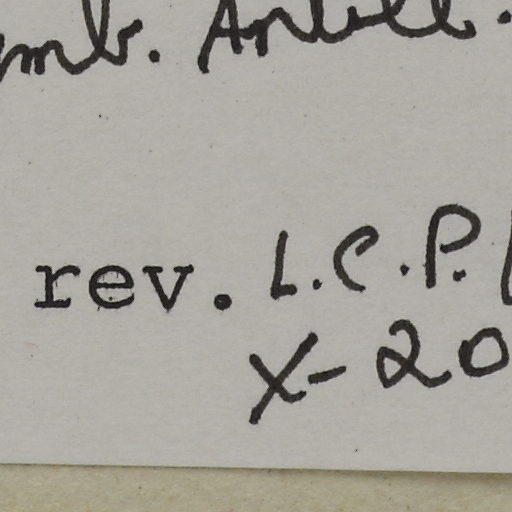 mb. Antill.
rev. L.C.P.
X-20